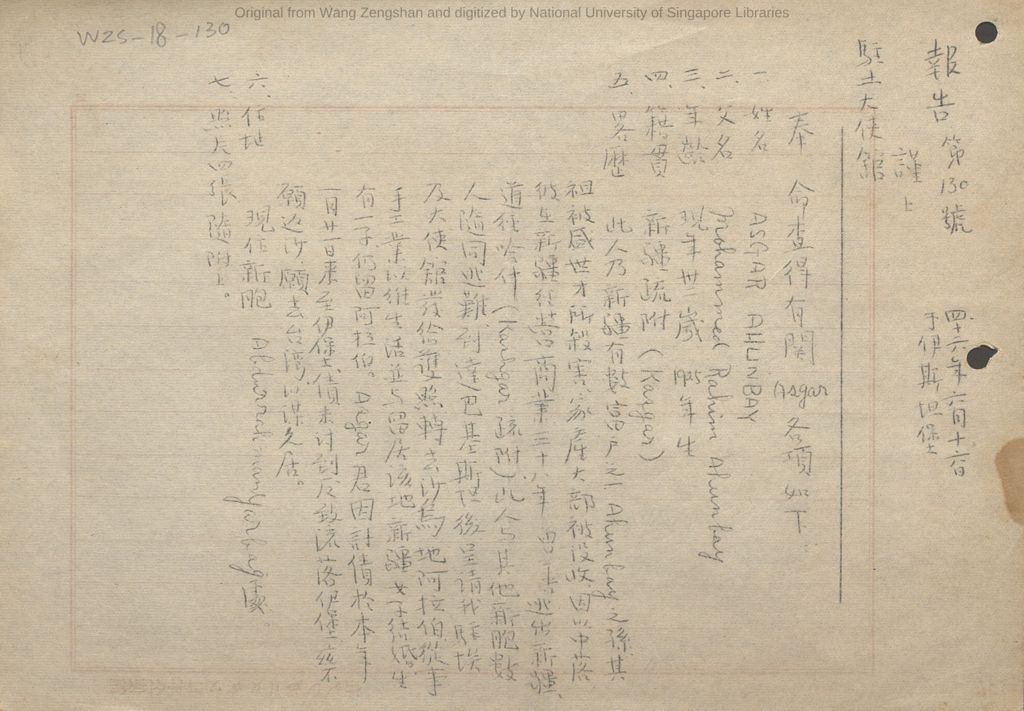 Original from Wang Zengshan and digitized by National University of Singapore Libraries
WZS-18-130
報告 第130號
四十六年六月十六日
于伊斯坦堡
謹上
駐土大使館
奉 命查得有関 Asgar 各項如下:
一、姓名 ASGAR AHUNBAY
二、父名 Mohammed Rahim Ahunbay
三、年齡 現年卅二歲 年生
四、籍貫 新疆疏附 (Kasgar)
五、畧歷 此人乃新疆有數富戶之一 Ahunbay 之孫其
祖被盛世才所殺害、家產大部被沒收因以中落
彼在新疆經營商業三十八年 逃出新疆、
道經喀什 (Kashgar 疏附) 此人与其他新胞數
人隨同逃難到達巴基斯坦後呈請我駐埃
及大使館發給護照轉去沙烏地阿拉伯從事
手工業以維生活並与留居該地新疆女子結婚。生
有一子仍留阿拉伯。Asgar 君因討債於本年
一月廿一日來至伊堡、債未討到反致流落伊堡玆不
願返沙願去台灣以謀久居。
六、住地 現住新胞 Abdurrahman 家。
七、照片四張隨附上。